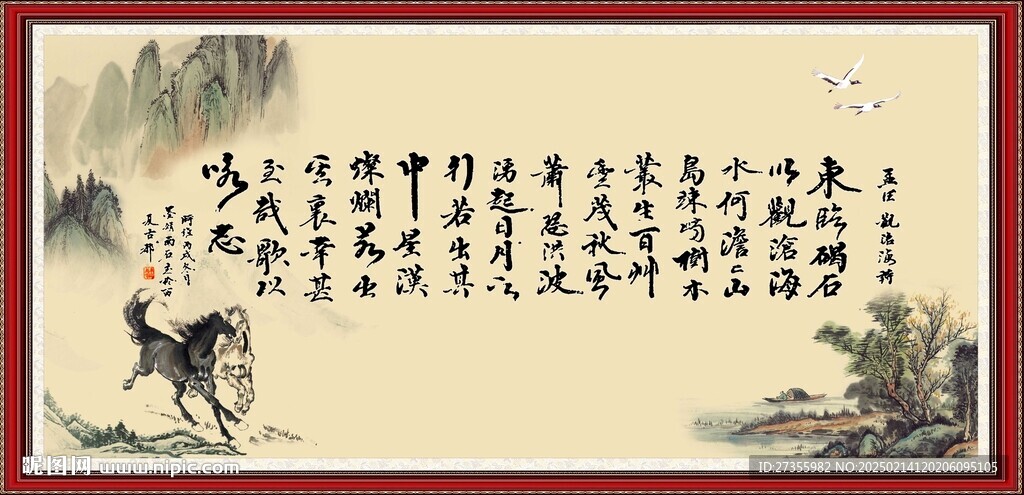 孟德觀沧海诗
東臨碣石
以觀滄海
水何澹々山
島竦峙樹木
叢生百艸
豐茂秋風
蕭瑟洪波
湧起日月之
行若出其
中星漢
燦爛若出
其裏幸甚
至哉歌以
咏志
丙戌冬月
夏古都
昵图网 www.nipic.com
ID:27355982 NO:20250214120206095105